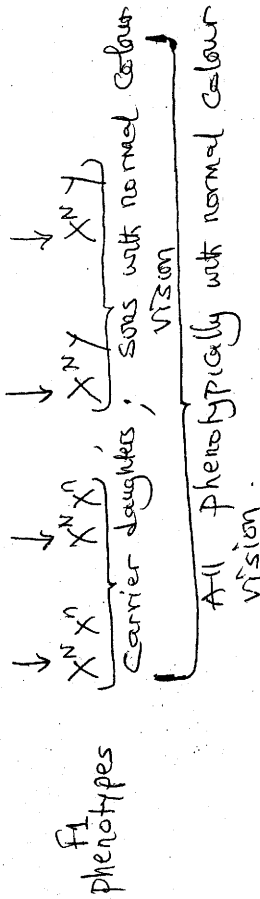 F1
phenotypes
↓ ↓ ↓ ↓
XᴺXⁿ XᴺXⁿ, XᴺY XᴺY
Carrier daughters, sons with normal colour
vision
All phenotypically with normal colour
vision.